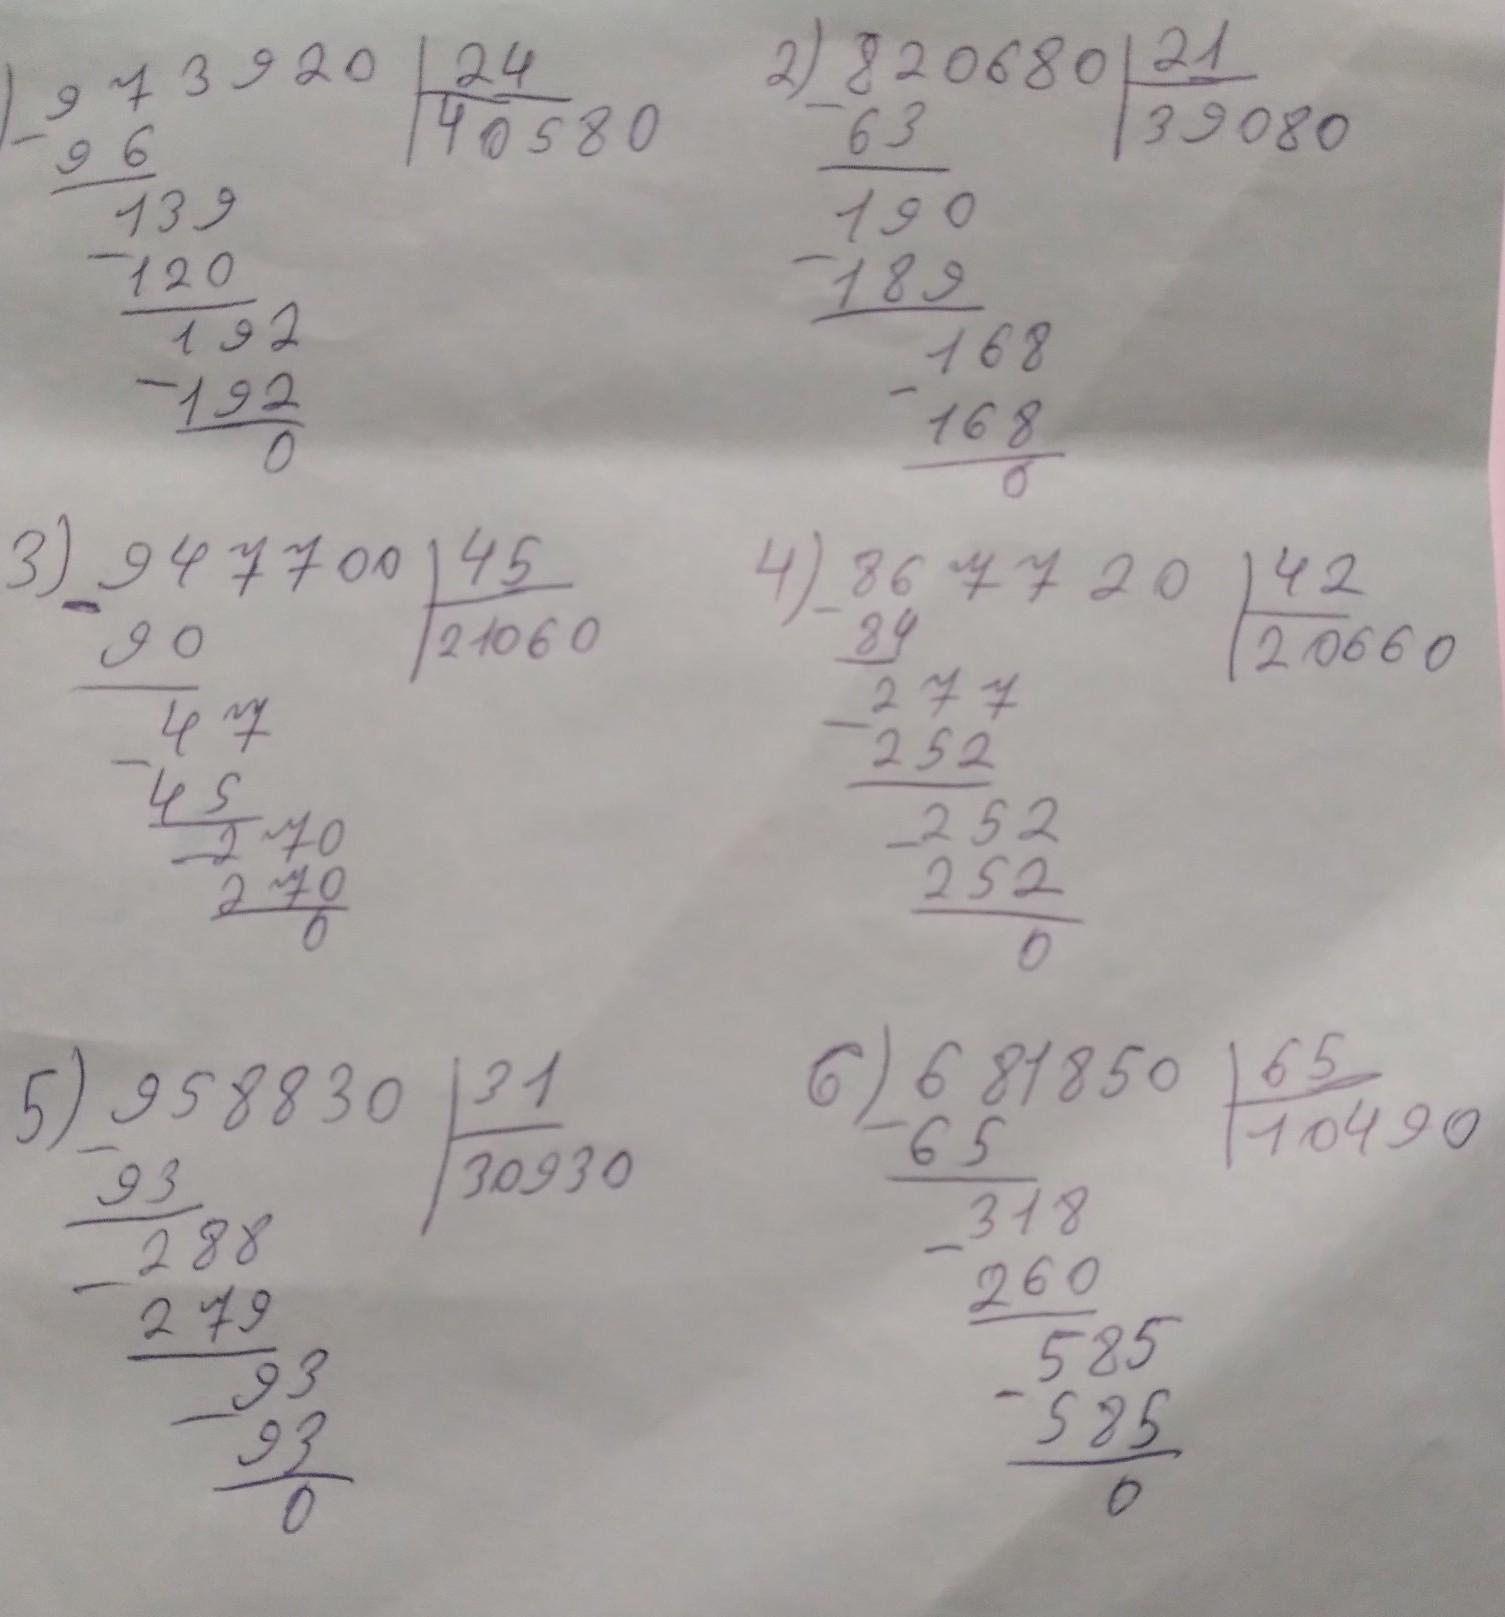 1) 973920 | 24
- 96 | 40580
139
- 120
192
- 192
0
2) 820680 | 21
- 63 | 39080
190
- 189
168
- 168
0
3) 947700 | 45
- 90 | 21060
47
- 45
270
- 270
0
4) 867720 | 42
- 84 | 20660
277
- 252
252
- 252
0
5) 958830 | 31
- 93 | 30930
288
- 279
93
- 93
0
6) 681850 | 65
- 65 | 10490
318
- 260
585
- 585
0